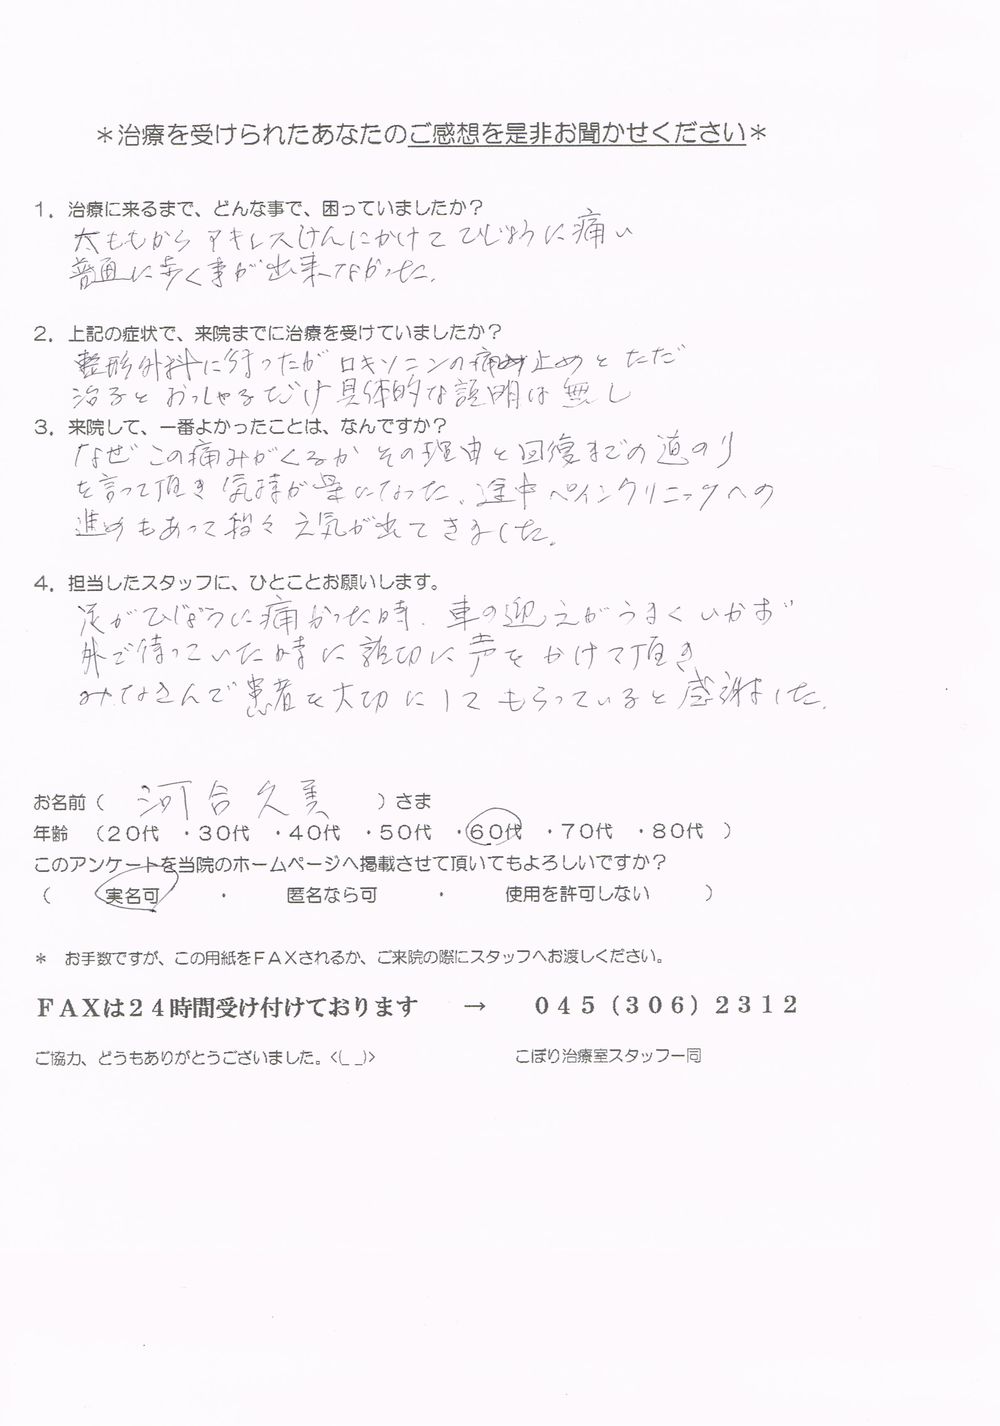 ＊治療を受けられたあなたのご感想を是非お聞かせください＊
１．治療に来るまで、どんな事で、困っていましたか？
太ももからアキレスけんにかけてひじょうに痛い
普通に歩く事が出来なかった。
２．上記の症状で、来院までに治療を受けていましたか？
整形外科に行ったがロキソニンの痛み止めとただ
治るとおっしゃるだけ具体的な説明は無し
３．来院して、一番よかったことは、なんですか？
なぜこの痛みがくるかその理由と回復までの道のり
を言って頂き気持が楽になった、途中ペインクリニックへの
進めもあって段々元気が出てきました。
４．担当したスタッフに、ひとことお願いします。
足がひじょうに痛かった時、車の迎えがうまくいかず
外で待っていた時に親切に声をかけて頂き
みなさんで患者を大切にしてもらっていると感謝ました。
お名前（ 河合久美 ）さま
年齢 （２０代 ・３０代 ・４０代 ・５０代 ・６０代 ・７０代 ・８０代 ）
このアンケートを当院のホームページへ掲載させて頂いてもよろしいですか？
（ 実名可 ・ 匿名なら可 ・ 使用を許可しない ）
＊ お手数ですが、この用紙をＦＡＸされるか、ご来院の際にスタッフへお渡しください。
ＦＡＸは２４時間受け付けております → ０４５（３０６）２３１２
ご協力、どうもありがとうございました。<(_ _)> こぼり治療室スタッフ一同